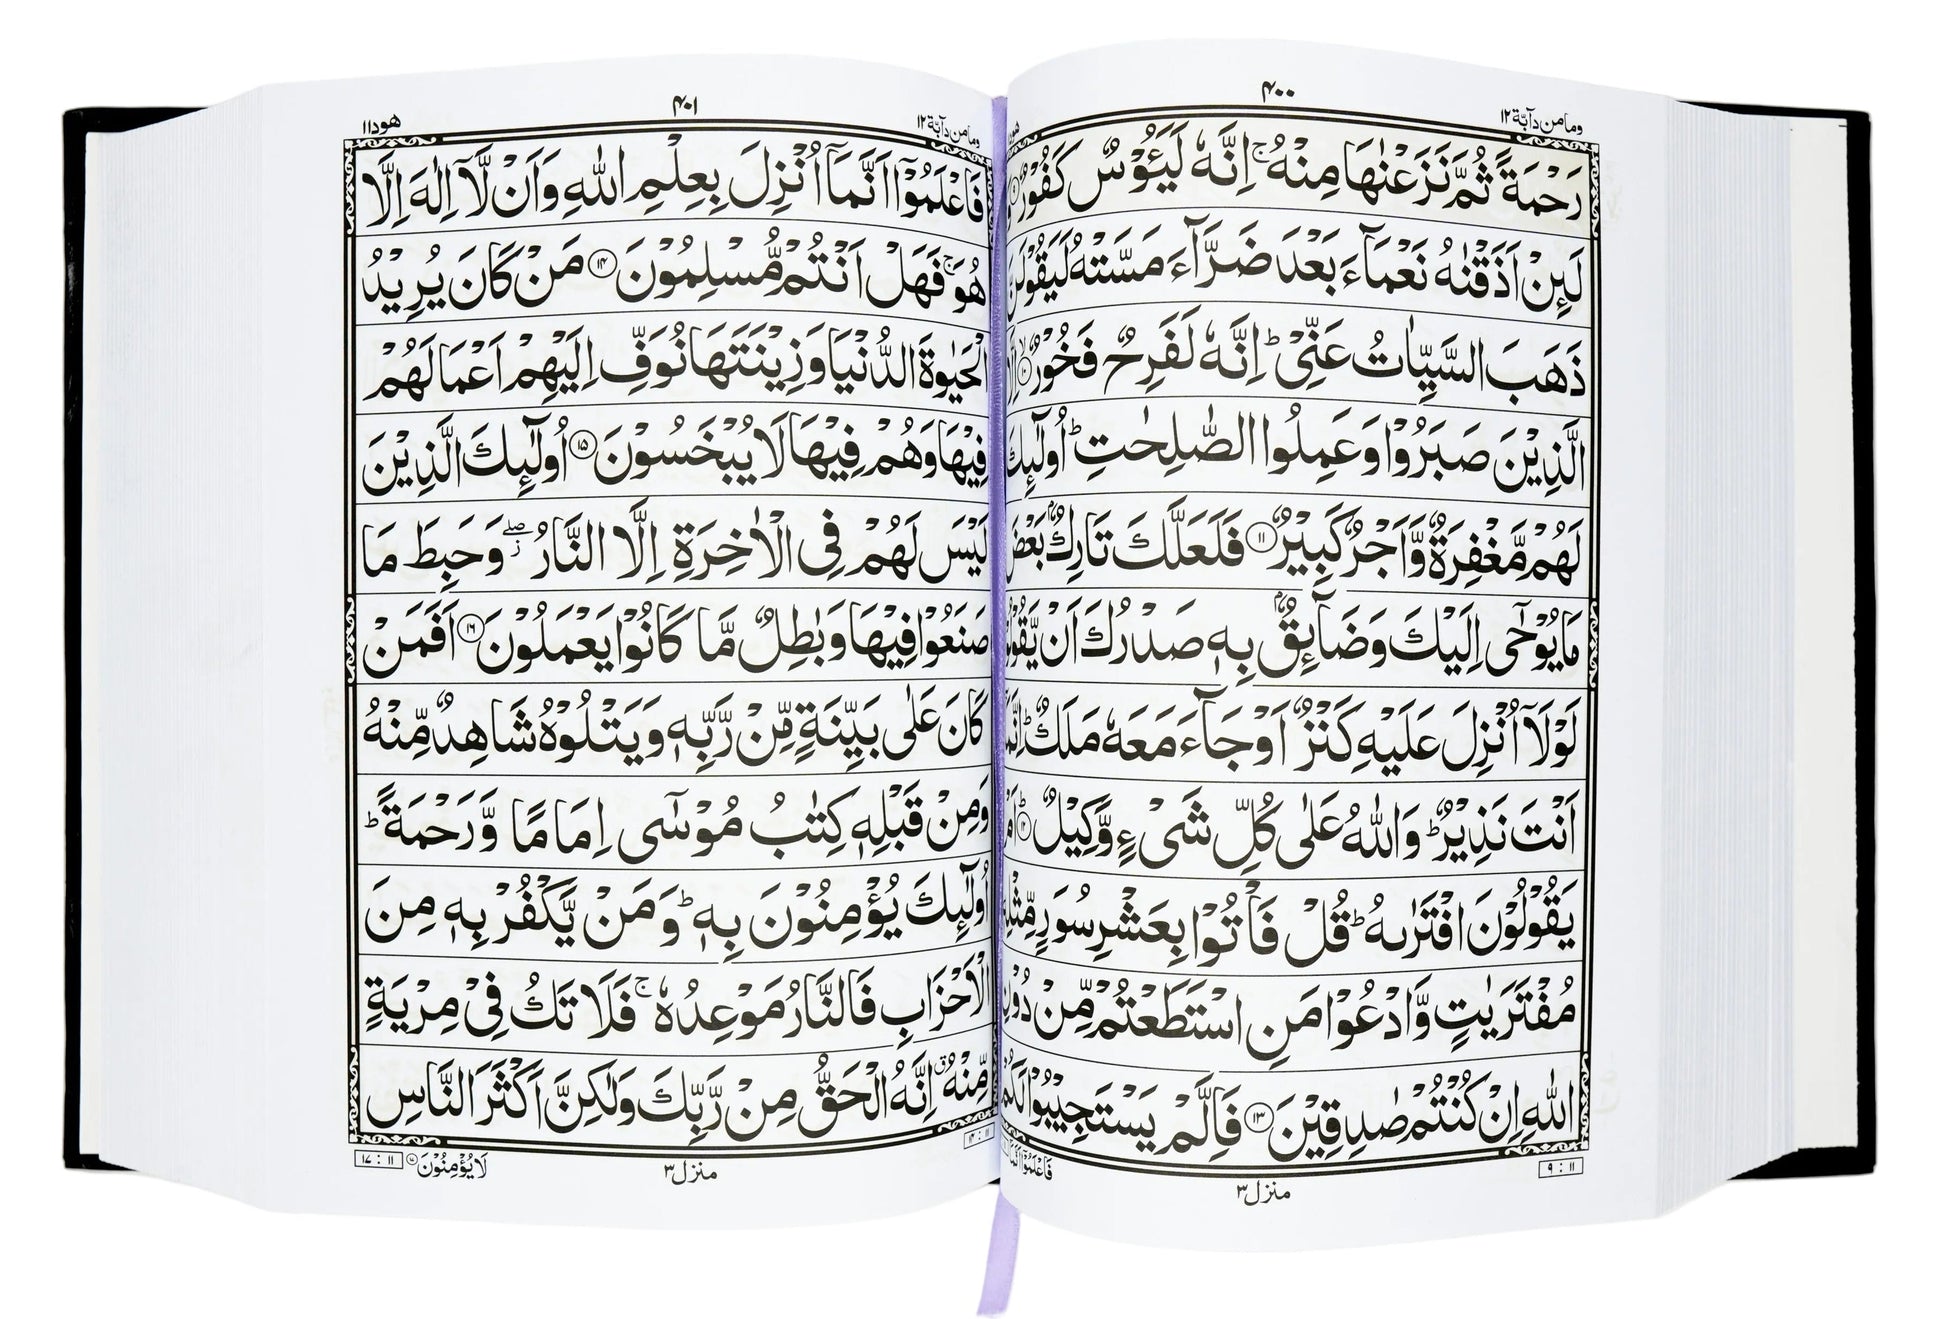 وما من دآبة ١٢
٤٠٠
هود
رَحْمَةً ثُمَّ نَزَعْنٰهَا مِنْهُ ۚ اِنَّهٗ لَيَـُٔوْسٌ كَفُوْرٌ ۹ وَ
لَىِٕنْ اَذَقْنٰهُ نَعْمَآءَ بَعْدَ ضَرَّآءَ مَسَّتْهُ لَيَقُوْلَنَّ
ذَهَبَ السَّيِّاٰتُ عَنِّيْ ؕ اِنَّهٗ لَفَرِحٌ فَخُوْرٌ ۙ ۱۰ اِلَّا
الَّذِيْنَ صَبَرُوْا وَعَمِلُوا الصّٰلِحٰتِ ؕ اُولٰٓىِٕكَ
لَهُمْ مَّغْفِرَةٌ وَّاَجْرٌ كَبِيْرٌ ۱۱ فَلَعَلَّكَ تَارِكٌۢ بَعْضَ
مَا يُوْحٰۤى اِلَيْكَ وَضَآىِٕقٌۢ بِهٖ صَدْرُكَ اَنْ يَّقُوْلُوْا
لَوْلَاۤ اُنْزِلَ عَلَيْهِ كَنْزٌ اَوْ جَآءَ مَعَهٗ مَلَكٌ ؕ اِنَّمَاۤ
اَنْتَ نَذِيْرٌ ؕ وَاللّٰهُ عَلٰى كُلِّ شَيْءٍ وَّكِيْلٌ ؕ ۱۲ اَمْ
يَقُوْلُوْنَ افْتَرٰىهُ ؕ قُلْ فَاْتُوْا بِعَشْرِ سُوَرٍ مِّثْلِهٖ
مُفْتَرَيٰتٍ وَّادْعُوْا مَنِ اسْتَطَعْتُمْ مِّنْ دُوْنِ
اللّٰهِ اِنْ كُنْتُمْ صٰدِقِيْنَ ۱۳ فَاِلَّمْ يَسْتَجِيْبُوْا لَكُمْ
۹ : ۱۱
منزل ۳
فَاعْلَمُوْۤا اَنَّمَاۤ
وما من دآبة ١٢
٤٠١
هود ١١
فَاعْلَمُوْۤا اَنَّمَاۤ اُنْزِلَ بِعِلْمِ اللّٰهِ وَاَنْ لَّاۤ اِلٰهَ اِلَّا
هُوَ ۚ فَهَلْ اَنْتُمْ مُّسْلِمُوْنَ ۱۴ مَنْ كَانَ يُرِيْدُ
الْحَيٰوةَ الدُّنْيَا وَزِيْنَتَهَا نُوَفِّ اِلَيْهِمْ اَعْمَالَهُمْ
فِيْهَا وَهُمْ فِيْهَا لَا يُبْخَسُوْنَ ۱۵ اُولٰٓىِٕكَ الَّذِيْنَ
لَيْسَ لَهُمْ فِي الْاٰخِرَةِ اِلَّا النَّارُ ۖز وَحَبِطَ مَا
صَنَعُوْا فِيْهَا وَبٰطِلٌ مَّا كَانُوْا يَعْمَلُوْنَ ۱۶ اَفَمَنْ
كَانَ عَلٰى بَيِّنَةٍ مِّنْ رَّبِّهٖ وَيَتْلُوْهُ شَاهِدٌ مِّنْهُ
وَمِنْ قَبْلِهٖ كِتٰبُ مُوْسٰۤى اِمَامًا وَّرَحْمَةً ؕ
اُولٰٓىِٕكَ يُؤْمِنُوْنَ بِهٖ ؕ وَمَنْ يَّكْفُرْ بِهٖ مِنَ
الْاَحْزَابِ فَالنَّارُ مَوْعِدُهٗ ۚ فَلَا تَكُ فِيْ مِرْيَةٍ
مِّنْهُ ۗ اِنَّهُ الْحَقُّ مِنْ رَّبِّكَ وَلٰكِنَّ اَكْثَرَ النَّاسِ
۱۴ : ۱۱
لَا يُؤْمِنُوْنَ ۱۷
۱۷ : ۱۱
منزل ۳